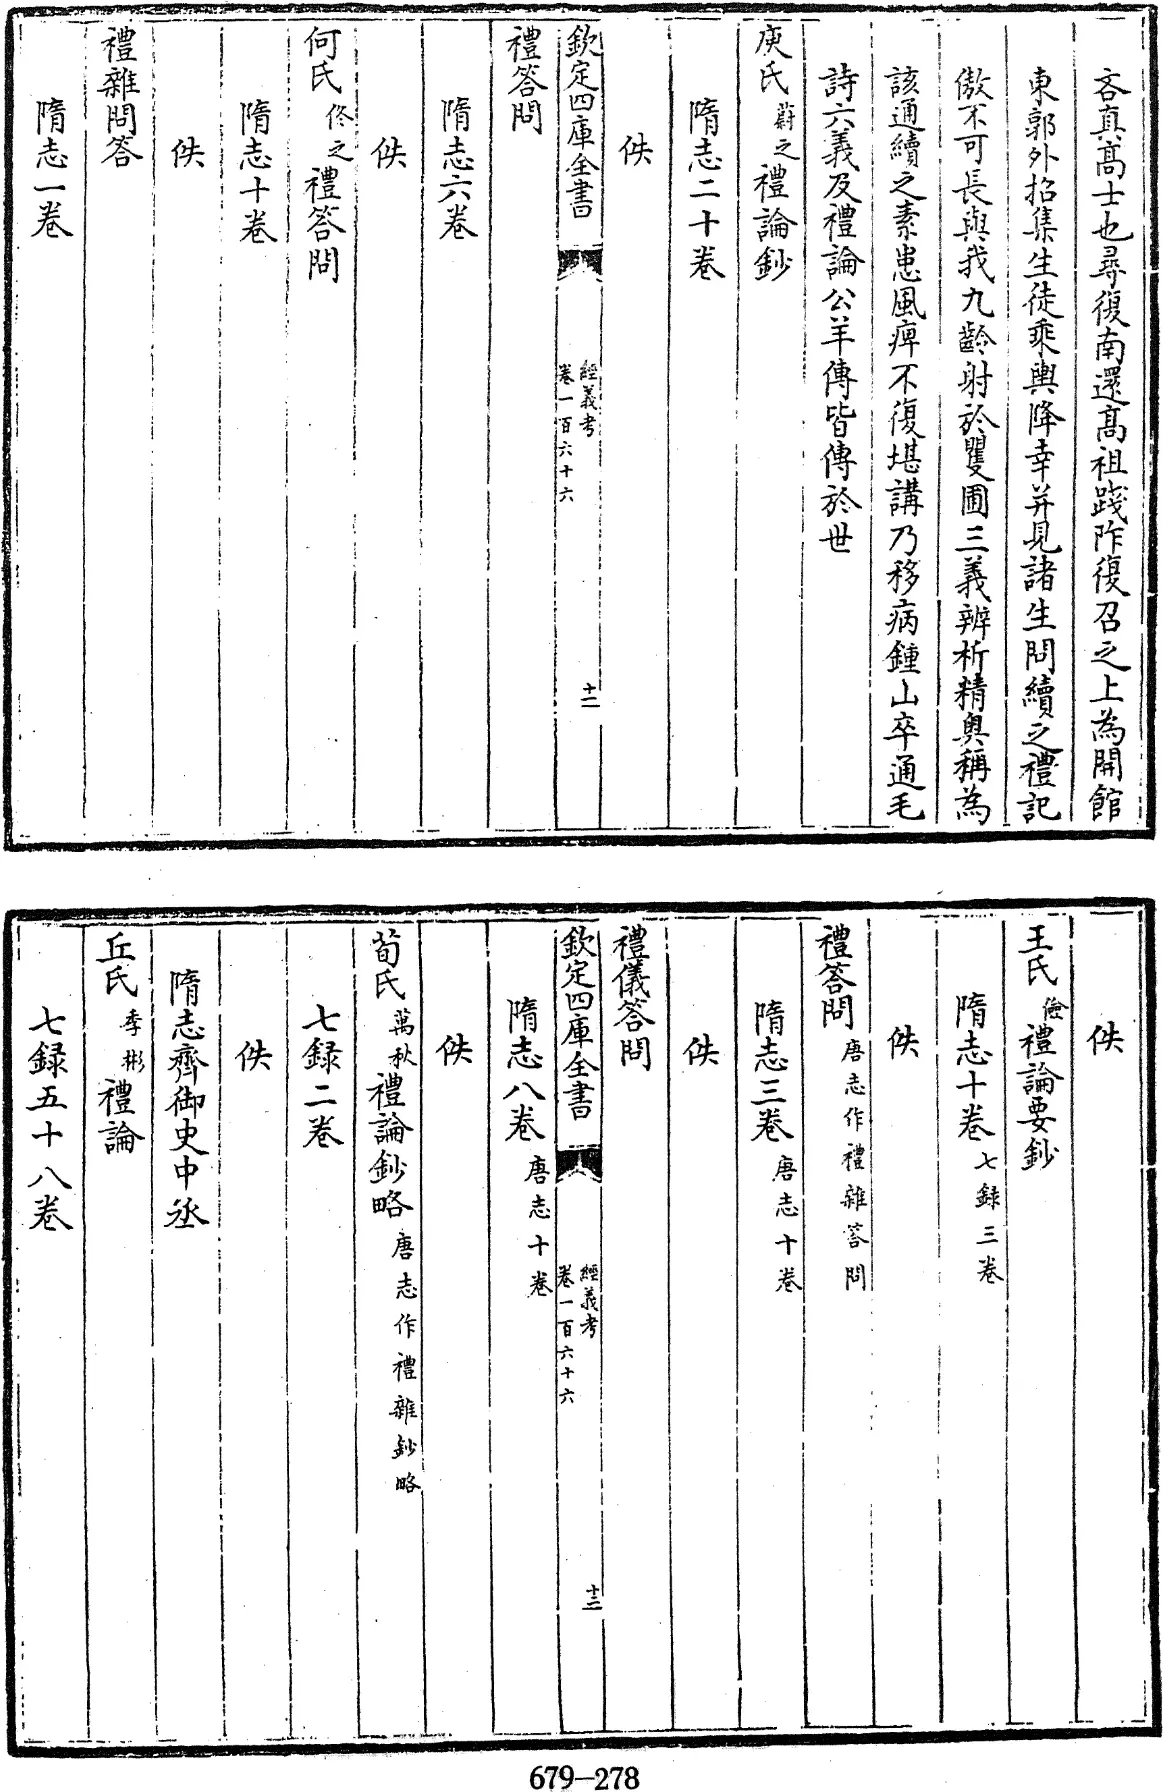 吝真髙士也尋復南還髙祖踐阼復召之上為開館
東郭外招集生徒乘輿降幸并見諸生問續之禮記
傲不可長與我九齡射於矍圃三義辨析精奥稱為
該通續之素患風痺不復堪講乃移病鍾山卒通毛
詩六義及禮論公羊傳皆傳於世
庾氏蔚之禮論鈔
隋志二十卷
佚
欽定四庫全書
經義考
卷一百六十六
十二
禮答問
隋志六卷
佚
何氏佟之禮答問
隋志十卷
佚
禮雜問答
隋志一卷
佚
王氏儉禮論要鈔
隋志十卷七録三卷
佚
禮答問唐志作禮雜答問
隋志三卷唐志十卷
佚
禮儀答問
欽定四庫全書
經義考
卷一百六十六
十三
隋志八卷唐志十卷
佚
荀氏萬秋禮論鈔略唐志作禮雜鈔略
七録二卷
佚
隋志齊御史中丞
丘氏季彬禮論
七録五十八卷
679—278